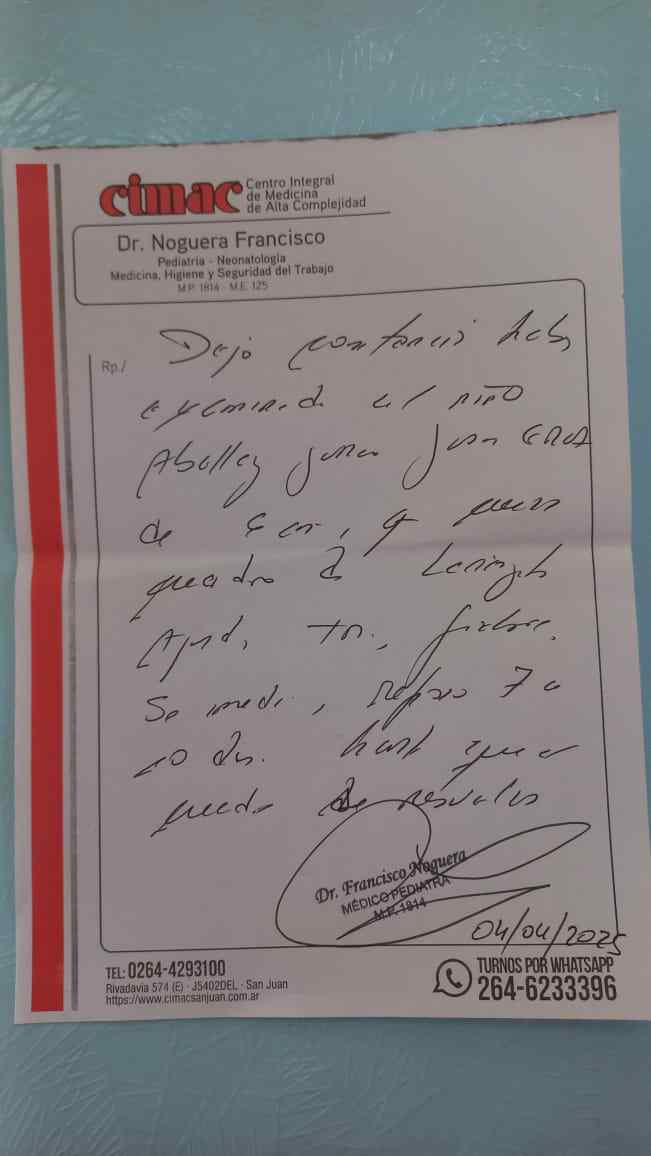 cimac Centro Integral
de Medicina
de Alta Complejidad
Dr. Noguera Francisco
Pediatría - Neonatología
Medicina, Higiene y Seguridad del Trabajo
M.P. 1814 - M.E. 125
Rp./
Dejo constancia haber
examinado al niño
Aballay Juan
de que
cuadro de Laringitis
Aguda, tos, fiebre.
Se medi, Reposo 7 a
10 días. hasta que el
cuadro se resuelva
Dr. Francisco Noguera
MÉDICO PEDIATRA
M.P. 1814
04/04/2025
TEL: 0264-4293100
Rivadavia 574 (E) - J5402DEL - San Juan
https://www.cimacsanjuan.com.ar
TURNOS POR WHATSAPP
264-6233396